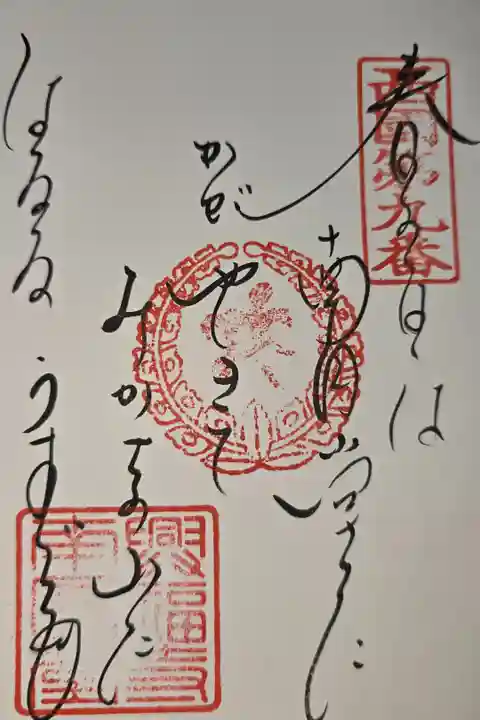 西國第九番
春の日は
南円堂に
かゞ
やきて
みかさの山に
はるる うす
興福寺